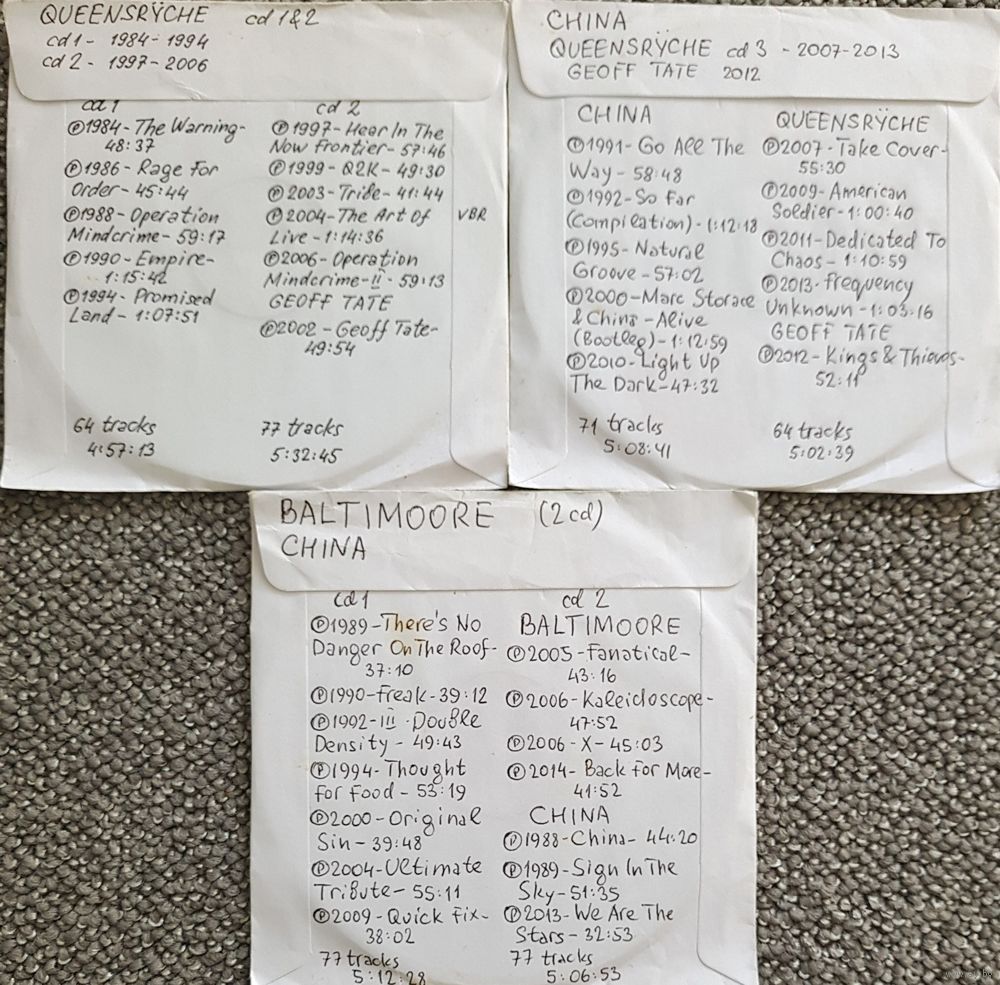 QUEENSRŸCHE cd 1&2
cd 1 - 1984-1994
cd 2 - 1997-2006
cd 1
Ⓟ1984 - The Warning -
48:37
Ⓟ1986 - Rage For
Order - 45:44
Ⓟ1988 - Operation
Mindcrime - 59:17
Ⓟ1990 - Empire -
1:15:42
Ⓟ1994 - Promised
Land - 1:07:51
64 tracks
4:57:13
cd 2
Ⓟ1997 - Hear In The
Now Frontier - 57:46
Ⓟ1999 - Q2K - 49:30
Ⓟ2003 - Tribe - 41:44
Ⓟ2004 - The Art Of
Live - 1:14:36
Ⓟ2006 - Operation
Mindcrime - II - 59:13
GEOFF TATE
Ⓟ2002 - Geoff Tate -
49:54
77 tracks
5:32:45
VBR
CHINA
QUEENSRŸCHE cd 3 - 2007-2013
GEOFF TATE 2012
CHINA
Ⓟ1991 - Go All The
Way - 58:48
Ⓟ1992 - So Far
(Compilation) - 1:12:18
Ⓟ1995 - Natural
Groove - 57:02
Ⓟ2000 - Marc Storace
& China - Alive
(Bootleg) - 1:12:59
Ⓟ2010 - Light Up
The Dark - 47:32
71 tracks
5:08:41
QUEENSRŸCHE
Ⓟ2007 - Take Cover -
55:30
Ⓟ2009 - American
Soldier - 1:00:40
Ⓟ2011 - Dedicated To
Chaos - 1:10:59
Ⓟ2013 - Frequency
Unknown - 1:03:16
GEOFF TATE
Ⓟ2012 - Kings & Thieves -
52:11
64 tracks
5:02:39
BALTIMOORE (2 cd)
CHINA
cd 1
Ⓟ1989 - There's No
Danger On The Roof -
37:10
Ⓟ1990 - Freak - 39:12
Ⓟ1992 - III - Double
Density - 49:43
Ⓟ1994 - Thought
For Food - 53:19
Ⓟ2000 - Original
Sin - 39:48
Ⓟ2004 - Ultimate
Tribute - 55:11
Ⓟ2009 - Quick Fix -
38:02
77 tracks
5:12:28
cd 2
BALTIMOORE
Ⓟ2005 - Fanatical -
43:16
Ⓟ2006 - Kaleidoscope -
47:52
Ⓟ2006 - X - 45:03
Ⓟ2014 - Back For More -
41:52
CHINA
Ⓟ1988 - China - 44:20
Ⓟ1989 - Sign In The
Sky - 51:35
Ⓟ2013 - We Are The
Stars - 32:53
77 tracks
5:06:53